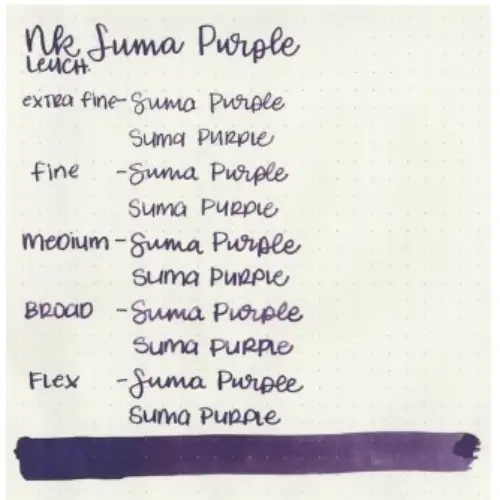 NK Suma Purple
LEUCH.
extra fine - Suma Purple
SUMA PURPLE
fine - Suma Purple
SUMA PURPLE
medium - Suma Purple
SUMA PURPLE
BROAD - Suma Purple
SUMA PURPLE
FLEX - Suma Purple
SUMA PURPLE